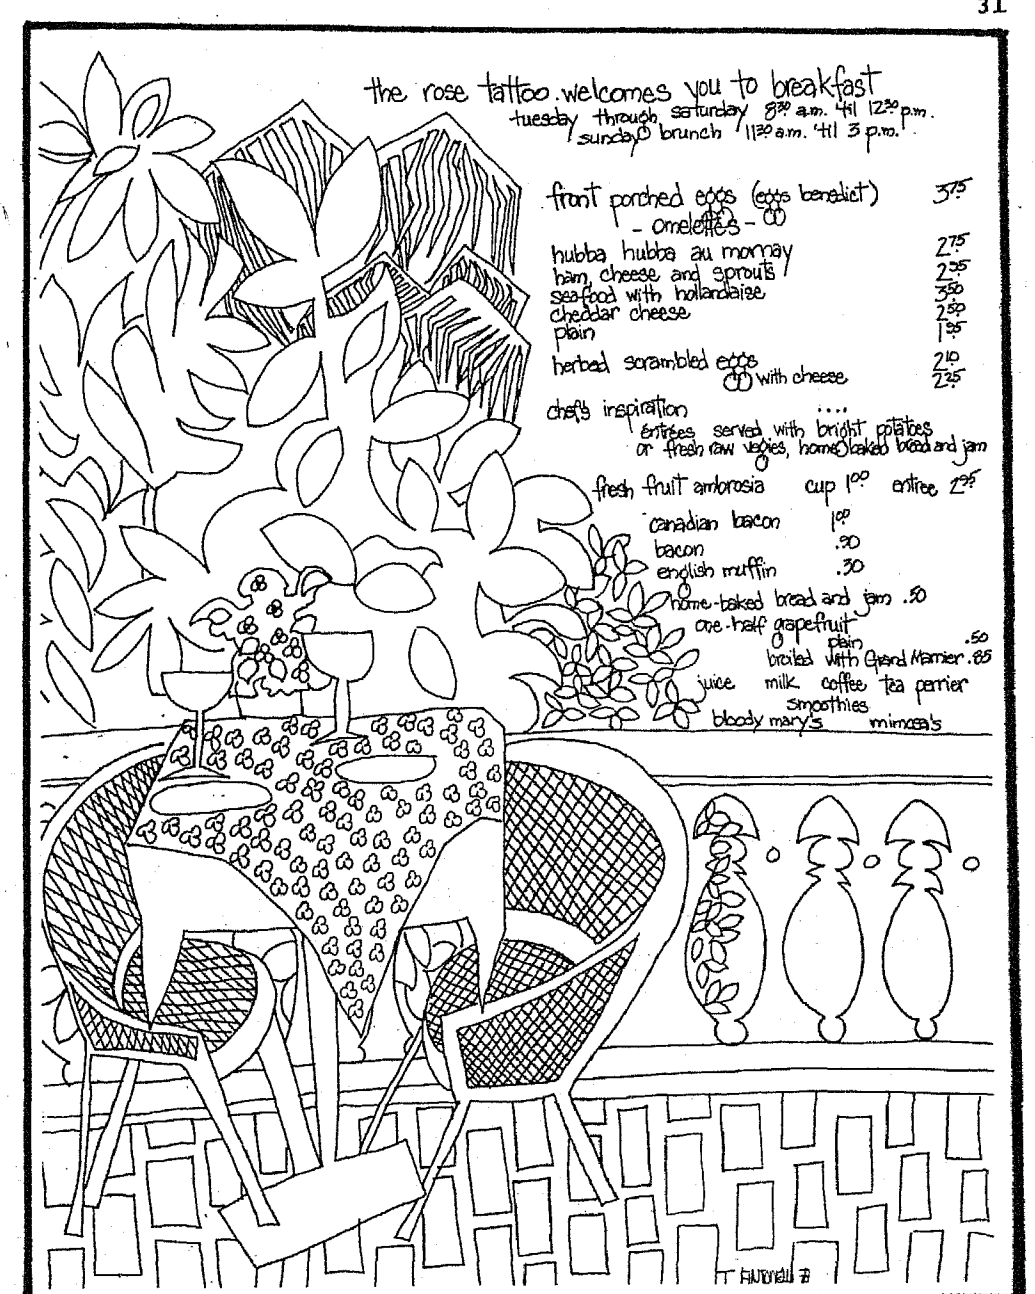 31
the rose tattoo welcomes you to breakfast
tuesday through saturday 8³⁰ a.m. 'til 12³⁰ p.m.
sunday brunch 11³⁰ a.m. 'til 3 p.m.
front porched eggs (eggs benedict) 3⁷⁵
- omelettes -
hubba hubba au mornay 2⁷⁵
ham, cheese and sprouts 2⁹⁵
seafood with hollandaise 3⁵⁰
cheddar cheese 2⁵⁰
plain 1⁹⁵
herbed scrambled eggs 2¹⁰
with cheese 2²⁵
chef's inspiration ....
entrées served with bright potatoes
or fresh raw vegies, home-baked bread and jam
fresh fruit ambrosia cup 1⁰⁰ entree 2⁹⁵
canadian bacon 1⁰⁰
bacon .90
english muffin .30
home-baked bread and jam .50
one-half grapefruit
plain .50
broiled with Grand Marnier .85
juice milk coffee tea perrier
smoothies
bloody mary's mimosa's